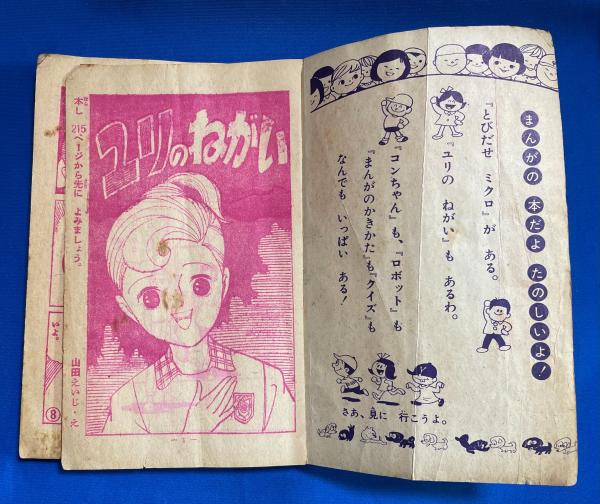 まんがの 本だよ たのしいよ!
『とびだせ ミクロ』が ある。
『ユリの ねがい』も あるわ。
『コンちゃん』も、『ロボット』も
『まんがのかきかた』も『クイズ』も
なんでも いっぱい ある!
さあ、見に 行こうよ。
ユリのねがい
本し 215ページから先に よみましょう。
山田えいじ・え
— 1 —
⑧